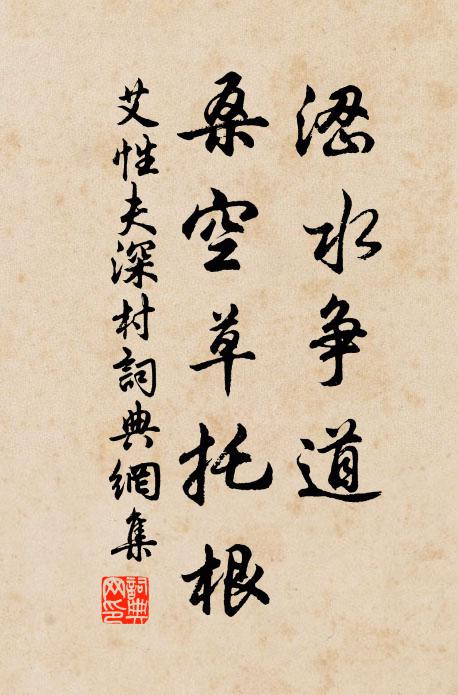 涩水争道
桑空草托根
艾性夫深村詞典網集
詞典网印